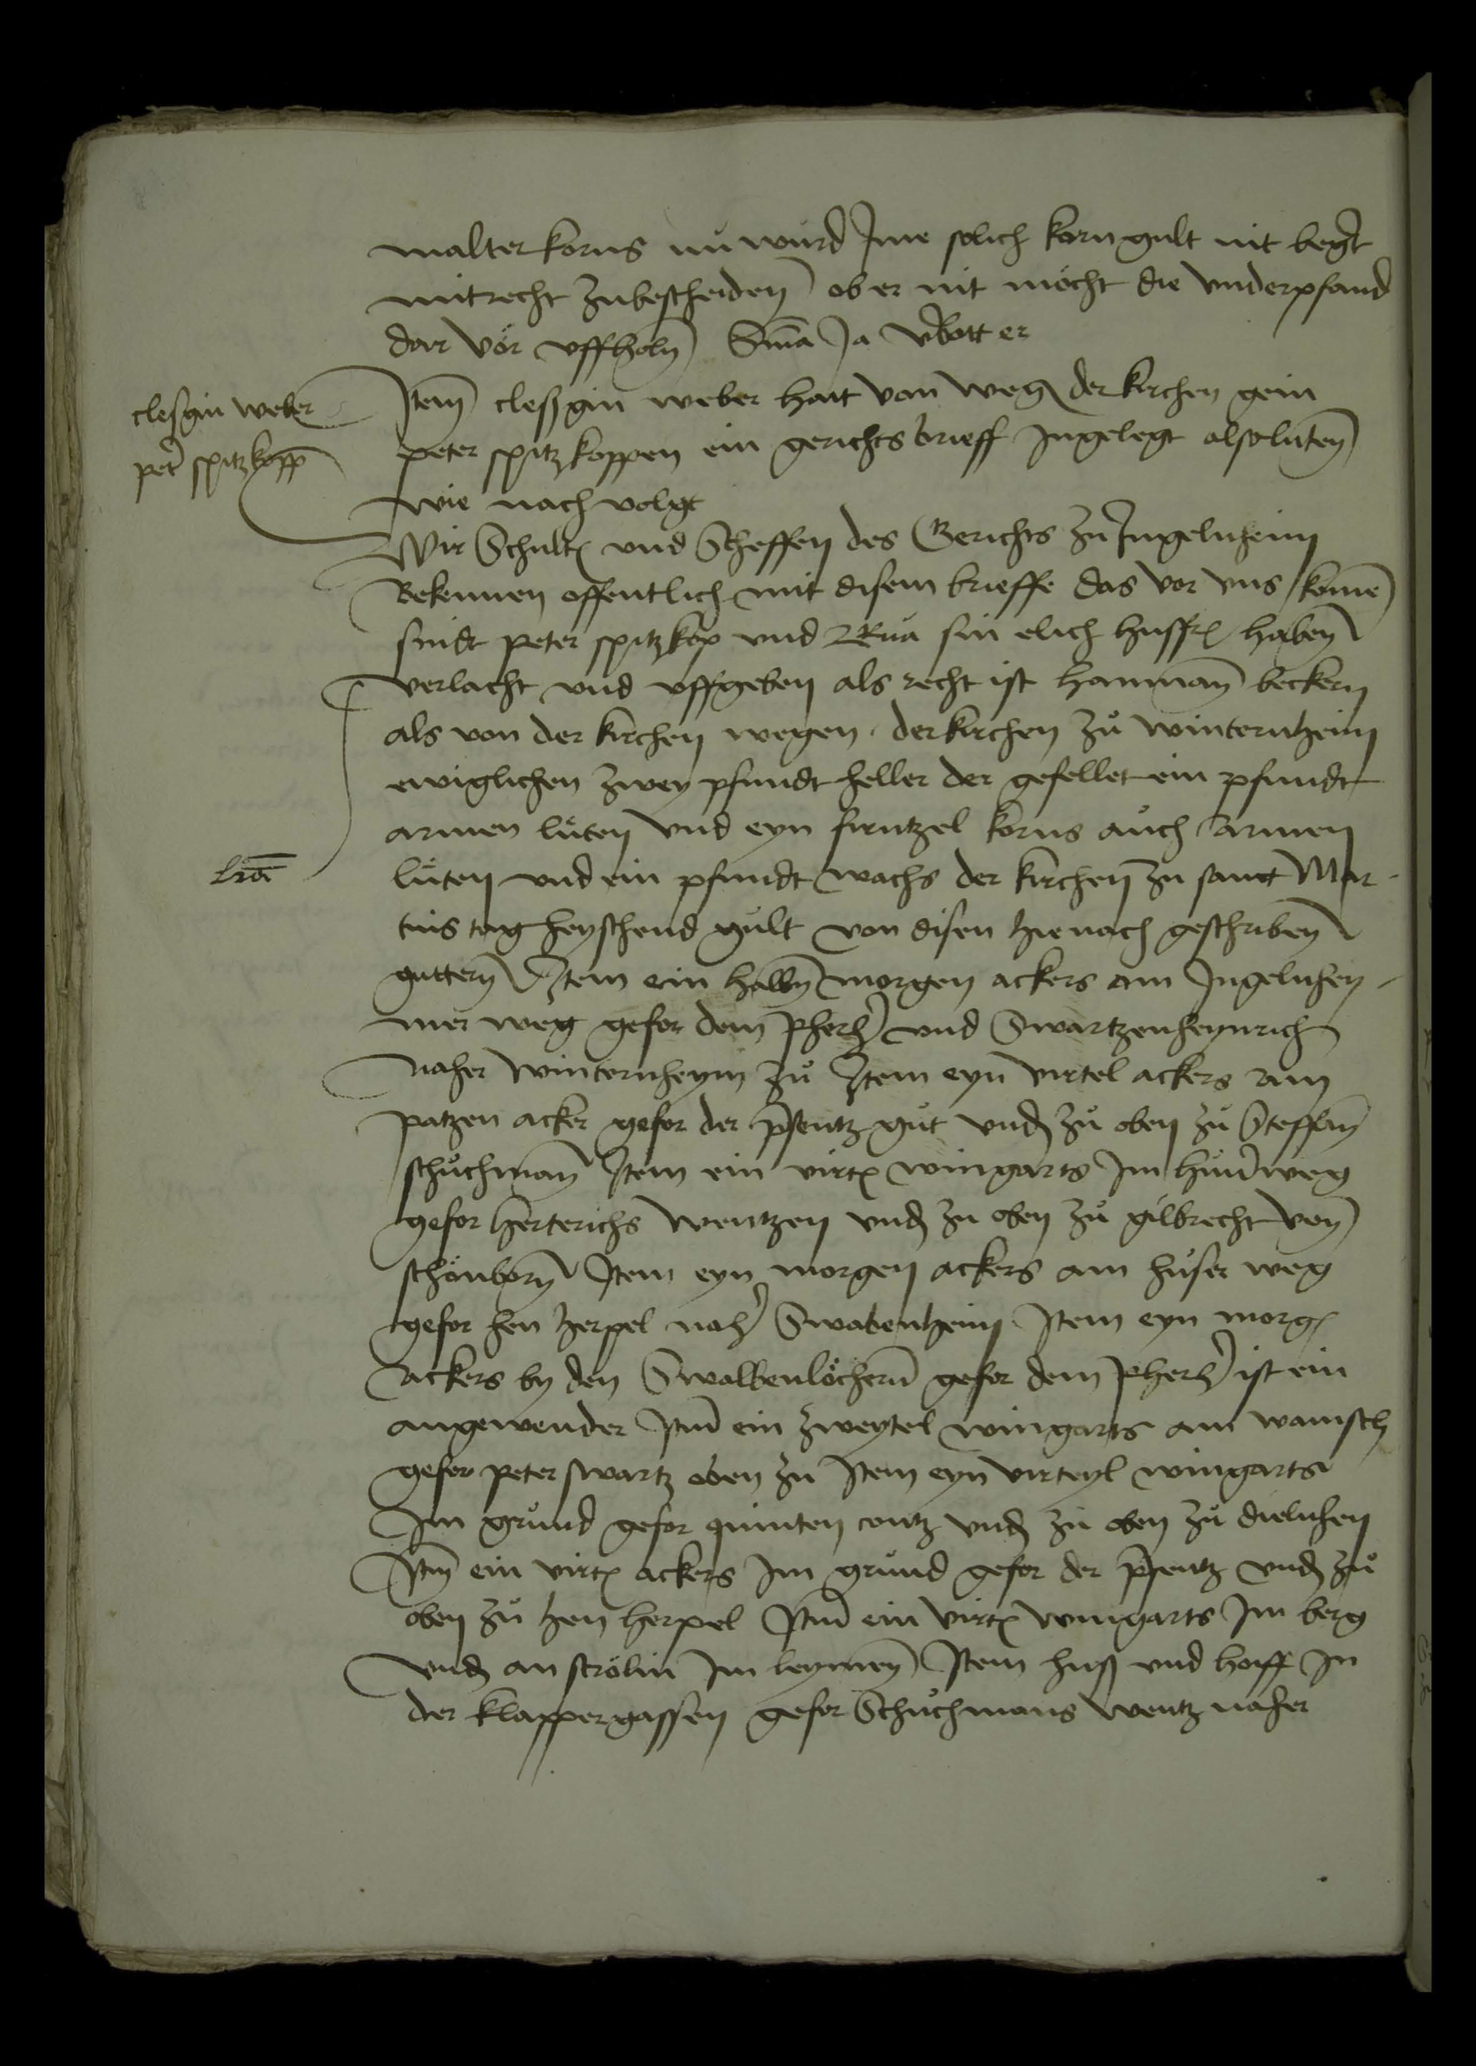 malter korns nů wůrd Ime solich korn gult nit begert
mit recht zubescheiden ob er nit mocht die underpfand
dar vor uffholn Sma Ja
Item cleßgin weber hait von weg der kirchen gein
clesgin weber
peter spitzkoppen ein gerichts brieff Ingelegt also luten
peter spitzkopp
wie nach volgt
Wir Schulth und Scheffen des Gerichts zu Ingelnheim
Bekennen offentlich mit disem brieffe das vor uns kome
sindt peter spitzkop und sin elich hussfr haben
verlacht und uffgeben als recht ist hanman beckern
als von der kirchen wegen der kirchen zů winternheim
ewiglichen zwey pfundt heller der gefellet ein pfundt
armen lůten und eyn firntzel korns aůch armen
lůten und ein pfundt wachs der kirchen zu sanct Mar-
lra
tins tag heyschend gult von disen hienach geschriben
guttern Item ein halbn morgen ackers am Ingelnhey-
mer weg gefor dem pherh und Swartzenheynrich
naher winternheym zů Item eyn virtel ackers am
patzen acker gefor der psentz gůt und zů oben zů Steffan
schůchman Item ein virt wingarts Im hůndweg
gefor herterichs wentzen und zu oben zů gilbrecht von
schonborn Item eyn morgen ackers am hůser weg
gefor hen herpel nah Swabenheim Item eyn morg
ackers by den Swalbenlochern gefor dem pherh ist ein
angewender Itm ein zweytel wingarts am
gefor peter swartz oben zu Item eyn virteyl wingarts
Im grůnd gefor quinten contz und zu oben zů dielnhen
Itm ein virt ackers Im grůnd gefor der psentz und zů
oben zů hen herpel Itm ein virt wingarts Im berg
und an strolin Im leymen Item huß und hoiff In
der klappergassen gefor Schůchmans wentz naher